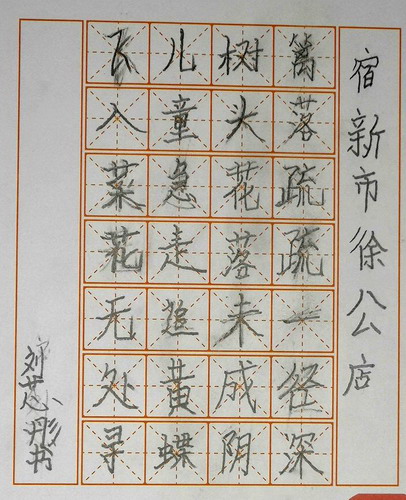 宿新市徐公店
篱落疏疏一径深
树头花落未成阴
儿童急走追黄蝶
飞入菜花无处寻
刘芯彤书